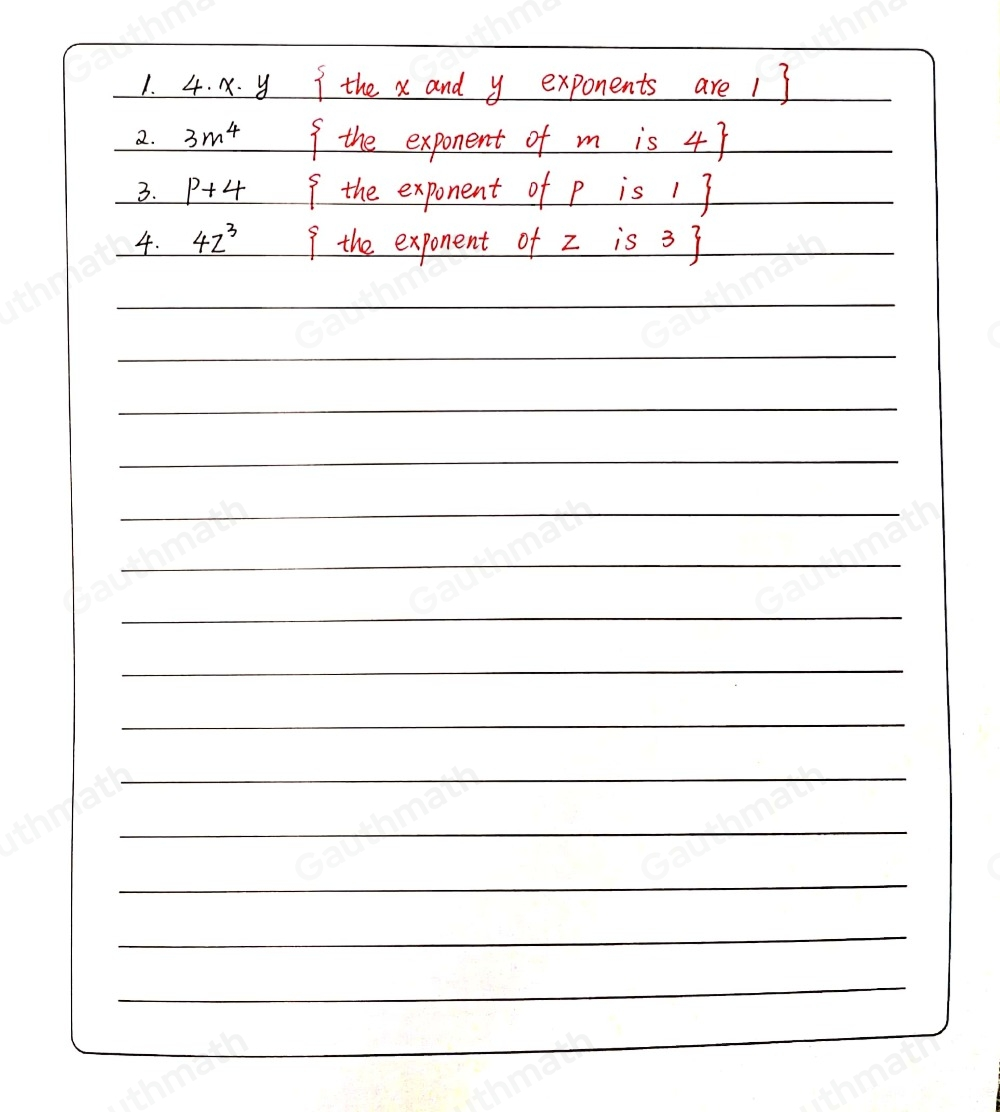 1. 4·x·y { the x and y exponents are 1 }
2. 3m⁴ { the exponent of m is 4 }
3. P+4 { the exponent of P is 1 }
4. 4z³ { the exponent of z is 3 }
Gauthmath